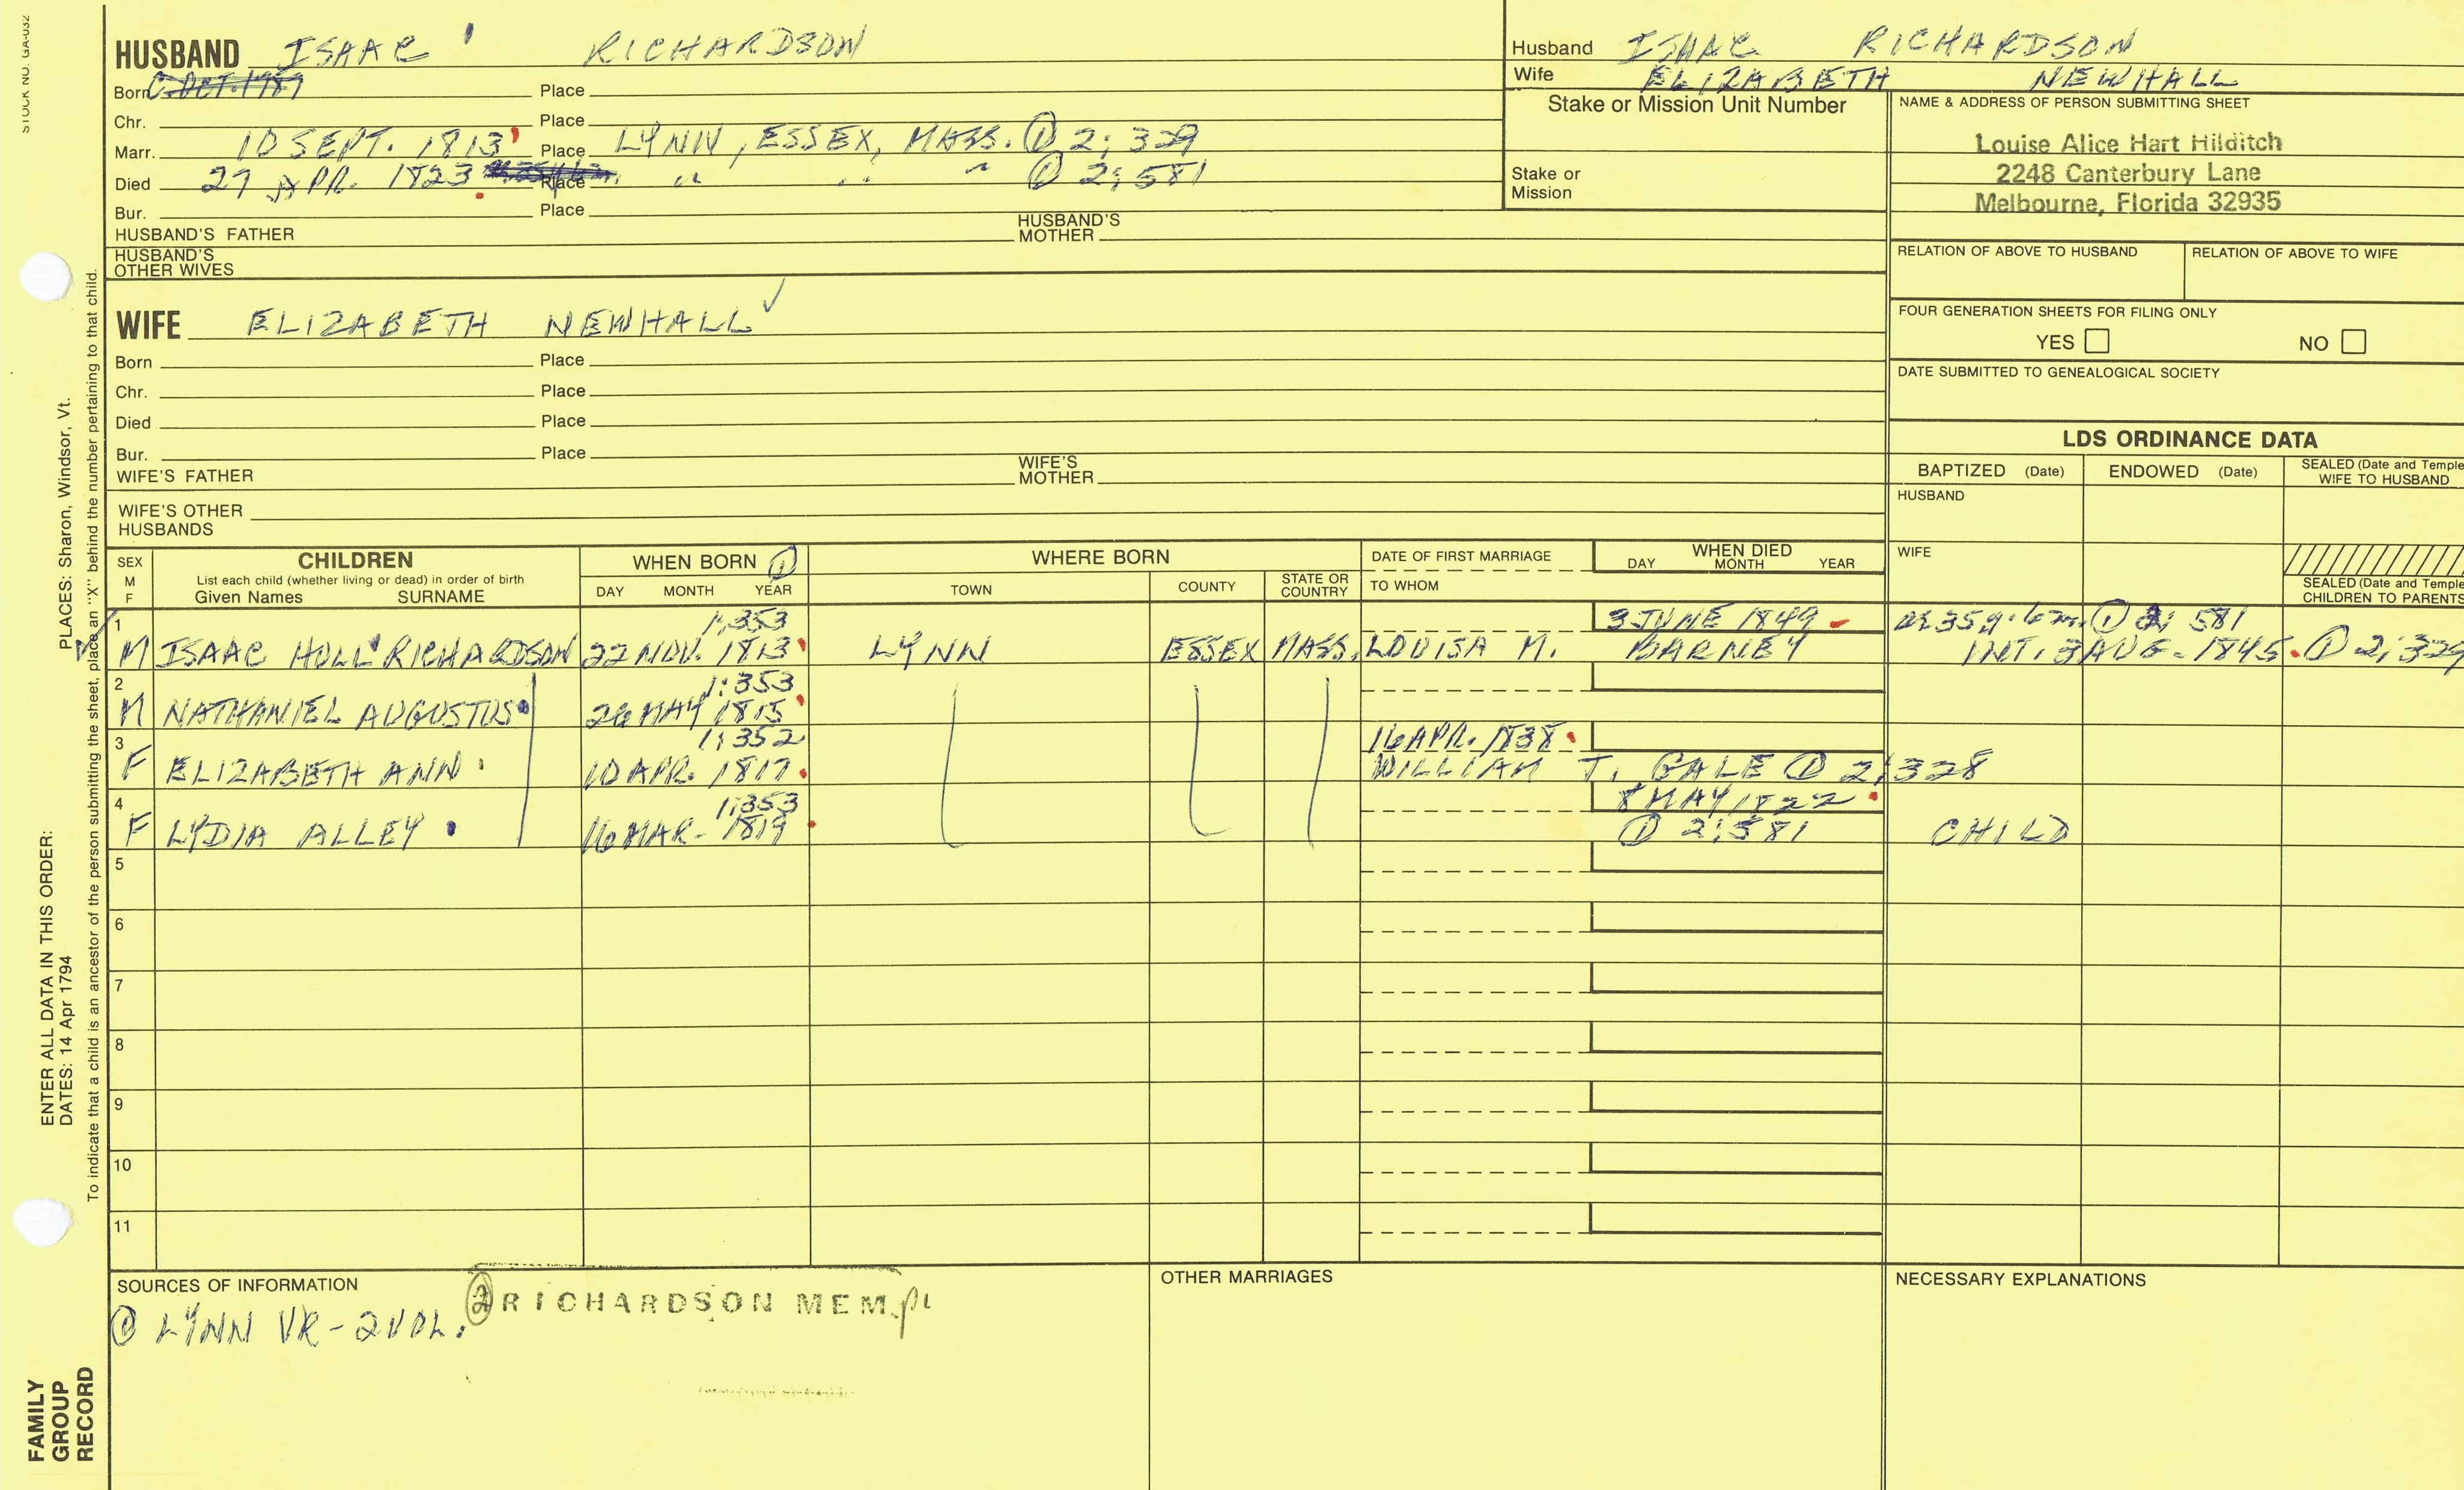 STOCK NO. GA-032
HUSBAND ISAAC RICHARDSON
Born C. OCT. 1789 Place
Chr. Place
Marr. 10 SEPT. 1813 Place LYNN, ESSEX, MASS. ① 2; 329
Died 27 APR. 1823 Place " " " ① 2; 581
Bur. Place
HUSBAND'S FATHER HUSBAND'S MOTHER
HUSBAND'S OTHER WIVES
Husband ISAAC RICHARDSON
Wife ELIZABETH NEWHALL
Stake or Mission Unit Number
Stake or Mission
NAME & ADDRESS OF PERSON SUBMITTING SHEET
Louise Alice Hart Hilditch
2248 Canterbury Lane
Melbourne, Florida 32935
RELATION OF ABOVE TO HUSBAND RELATION OF ABOVE TO WIFE
FOUR GENERATION SHEETS FOR FILING ONLY
YES NO
DATE SUBMITTED TO GENEALOGICAL SOCIETY
WIFE ELIZABETH NEWHALL ✓
Born Place
Chr. Place
Died Place
Bur. Place
WIFE'S FATHER WIFE'S MOTHER
WIFE'S OTHER HUSBANDS
LDS ORDINANCE DATA
BAPTIZED (Date) ENDOWED (Date) SEALED (Date and Temple
WIFE TO HUSBAND
HUSBAND
WIFE
SEALED (Date and Temple
CHILDREN TO PARENTS
SEX M F
CHILDREN
List each child (whether living or dead) in order of birth
Given Names SURNAME
WHEN BORN ①
DAY MONTH YEAR
WHERE BORN
TOWN COUNTY STATE OR COUNTRY
DATE OF FIRST MARRIAGE
TO WHOM
WHEN DIED
DAY MONTH YEAR
1 1:353 3 JUNE 1849 35y. 6m. ① 2; 581
M ISAAC HOLL RICHARDSON 22 NOV. 1813 LYNN ESSEX MASS. LOUISA M. BARNEY INT. 3 AUG. 1845. ① 2; 329
2 1:353
M NATHANIEL AUGUSTUS 26 MAY 1815
3 1:352 16 APR. 1838
F ELIZABETH ANN 10 APR. 1817 WILLIAM T. GALE ① 2:328
4 1:353 8 MAY 1822
F LYDIA ALLEY 16 MAR. 1819 ① 2:581 CHILD
5
6
7
8
9
10
11
SOURCES OF INFORMATION
① LYNN VR - 2 VOL. ② RICHARDSON MEM.
OTHER MARRIAGES
NECESSARY EXPLANATIONS
ENTER ALL DATA IN THIS ORDER:
DATES: 14 Apr 1794 PLACES: Sharon, Windsor, Vt.
To indicate that a child is an ancestor of the person submitting the sheet, place an "X" behind the number pertaining to that child.
FAMILY
GROUP
RECORD